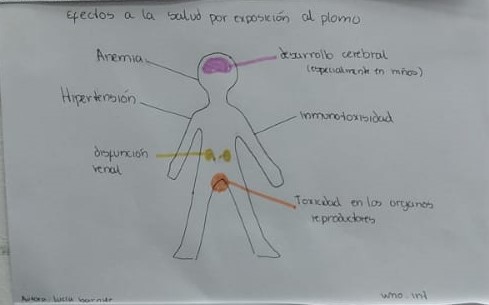 Efectos a la salud por exposición al plomo
Anemia
desarrollo cerebral
(especialmente en niños)
Hipertensión
inmunotoxisidad
disfunción
renal
Toxicidad en los organos
reproductores
who.int